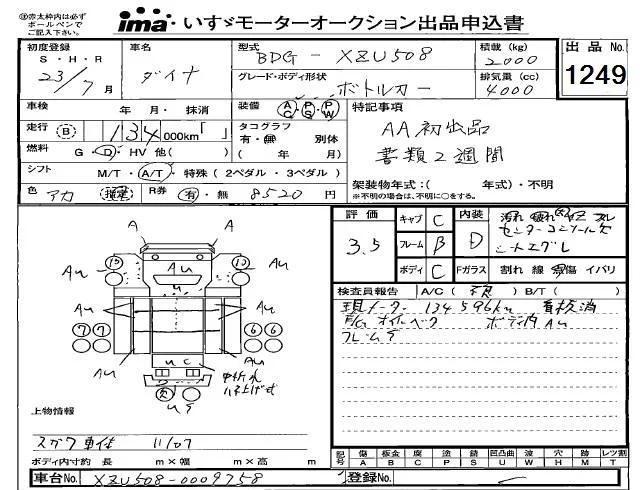 ㊟赤太枠内は必ず
ボールペンで
ご記入下さい。
ima いすゞモーターオークション出品申込書
初度登録 車名 型式 積載 (kg) 出品 No.
S・H・R
23/7月 ダイナ BDG-XZU508 2000 1249
グレード・ボディ形状 排気量 (cc)
ボトルカー 4000
車検 年 月・ 抹消 装備 AC・PS・PW 特記事項
走行 B 134 000km「 」 タコグラフ AA初出品
有・無 別体
燃料 G・D・HV 他( ) ( 年 月) 書類2週間
シフト M/T・A/T・特殊(2ペダル・3ペダル) 架装物年式:( 年式)・不明
※不明の場合は、不明に〇をする。
色 アカ R券 有・無 8520円
評価 キャブ C 内装
3.5 フレーム B D センターコンソール欠
ボディ C Fガラス 割れ 線 傷 イバリ
検査員報告 A/C( ) B/T( )
現メーター 134596km 看板消
E/G オイルベタ ボディ内 Au
フレームサ
A A
Au Au Au
Au Au
7 7 6 6
Au Au
UC
中折れ
ハネ上げ式
欠
US
上物情報
スガワ車体 11/07
ボディ内寸約 長 m×幅 m×高 m
記号 傷 板金 腐 塗 錆 凹凸曲 波 穴 無 レツ割
A B C P S U W H M T
車台No. XZU508-0009758 登録No.